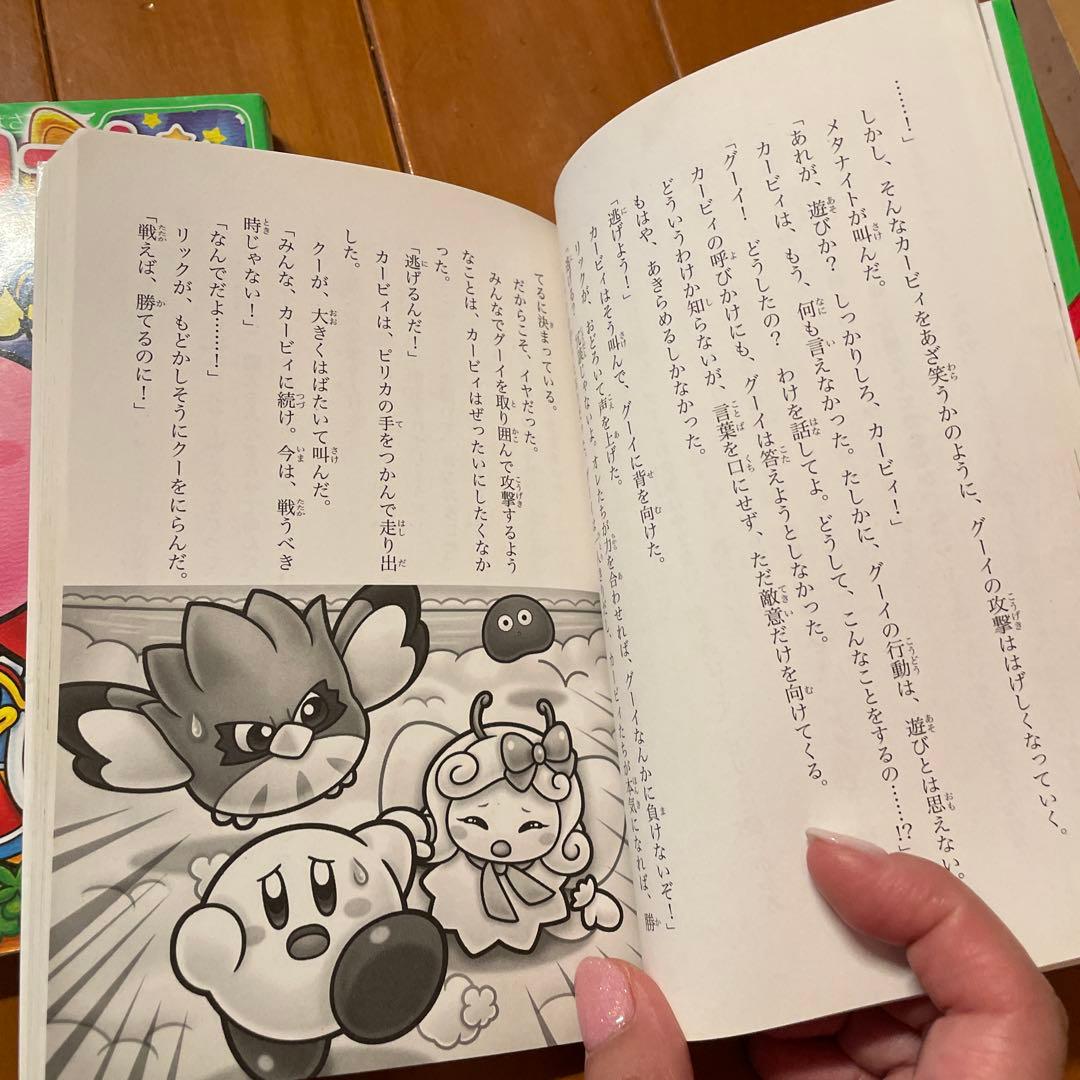 ……！」
しかし、そんなカービィをあざ笑うかのように、グーイの攻撃ははげしくなっていく。
メタナイトが叫んだ。
「あれが、遊びか？　しっかりしろ、カービィ！」
カービィは、もう、何も言えなかった。たしかに、グーイの行動は、遊びとは思えない。
「グーイ！　どうしたの？　わけを話してよ。どうして、こんなことをするの……！？」
カービィの呼びかけにも、グーイは答えようとしなかった。
どういうわけか知らないが、言葉を口にせず、ただ敵意だけを向けてくる。
もはや、あきらめるしかなかった。
「逃げよう！」
カービィはそう叫んで、グーイに背を向けた。
リックが、おどろいて声を上げた。
じゃないよ。オレたちが力を合わせれば、グーイなんかに負けないぞ！」
カービィたちが本気になれば、勝
てるに決まっている。
だからこそ、イヤだった。
みんなでグーイを取り囲んで攻撃するよう
なことは、カービィはぜったいにしたくなか
った。
「逃げるんだ！」
カービィは、ピリカの手をつかんで走り出
した。
クーが、大きくはばたいて叫んだ。
「みんな、カービィに続け。今は、戦うべき
時じゃない！」
「なんでだよ……！」
リックが、もどかしそうにクーをにらんだ。
「戦えば、勝てるのに！」